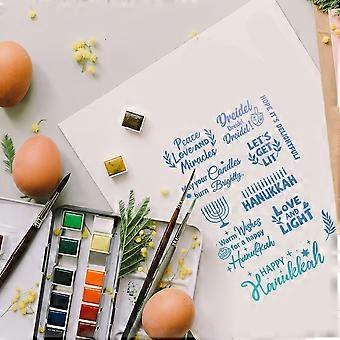 Peace
Love AND
Miracles
Dreidel
Dreidel
Dreidel!
HOPE IT'S DELIGHTFUL!
LET'S
GET
LIT
May your Candles
burn Brightly
HANUKKAH
LOVE
AND
LIGHT
Warm Wishes
for a happy
Hanukkah
HAPPY
Hanukkah